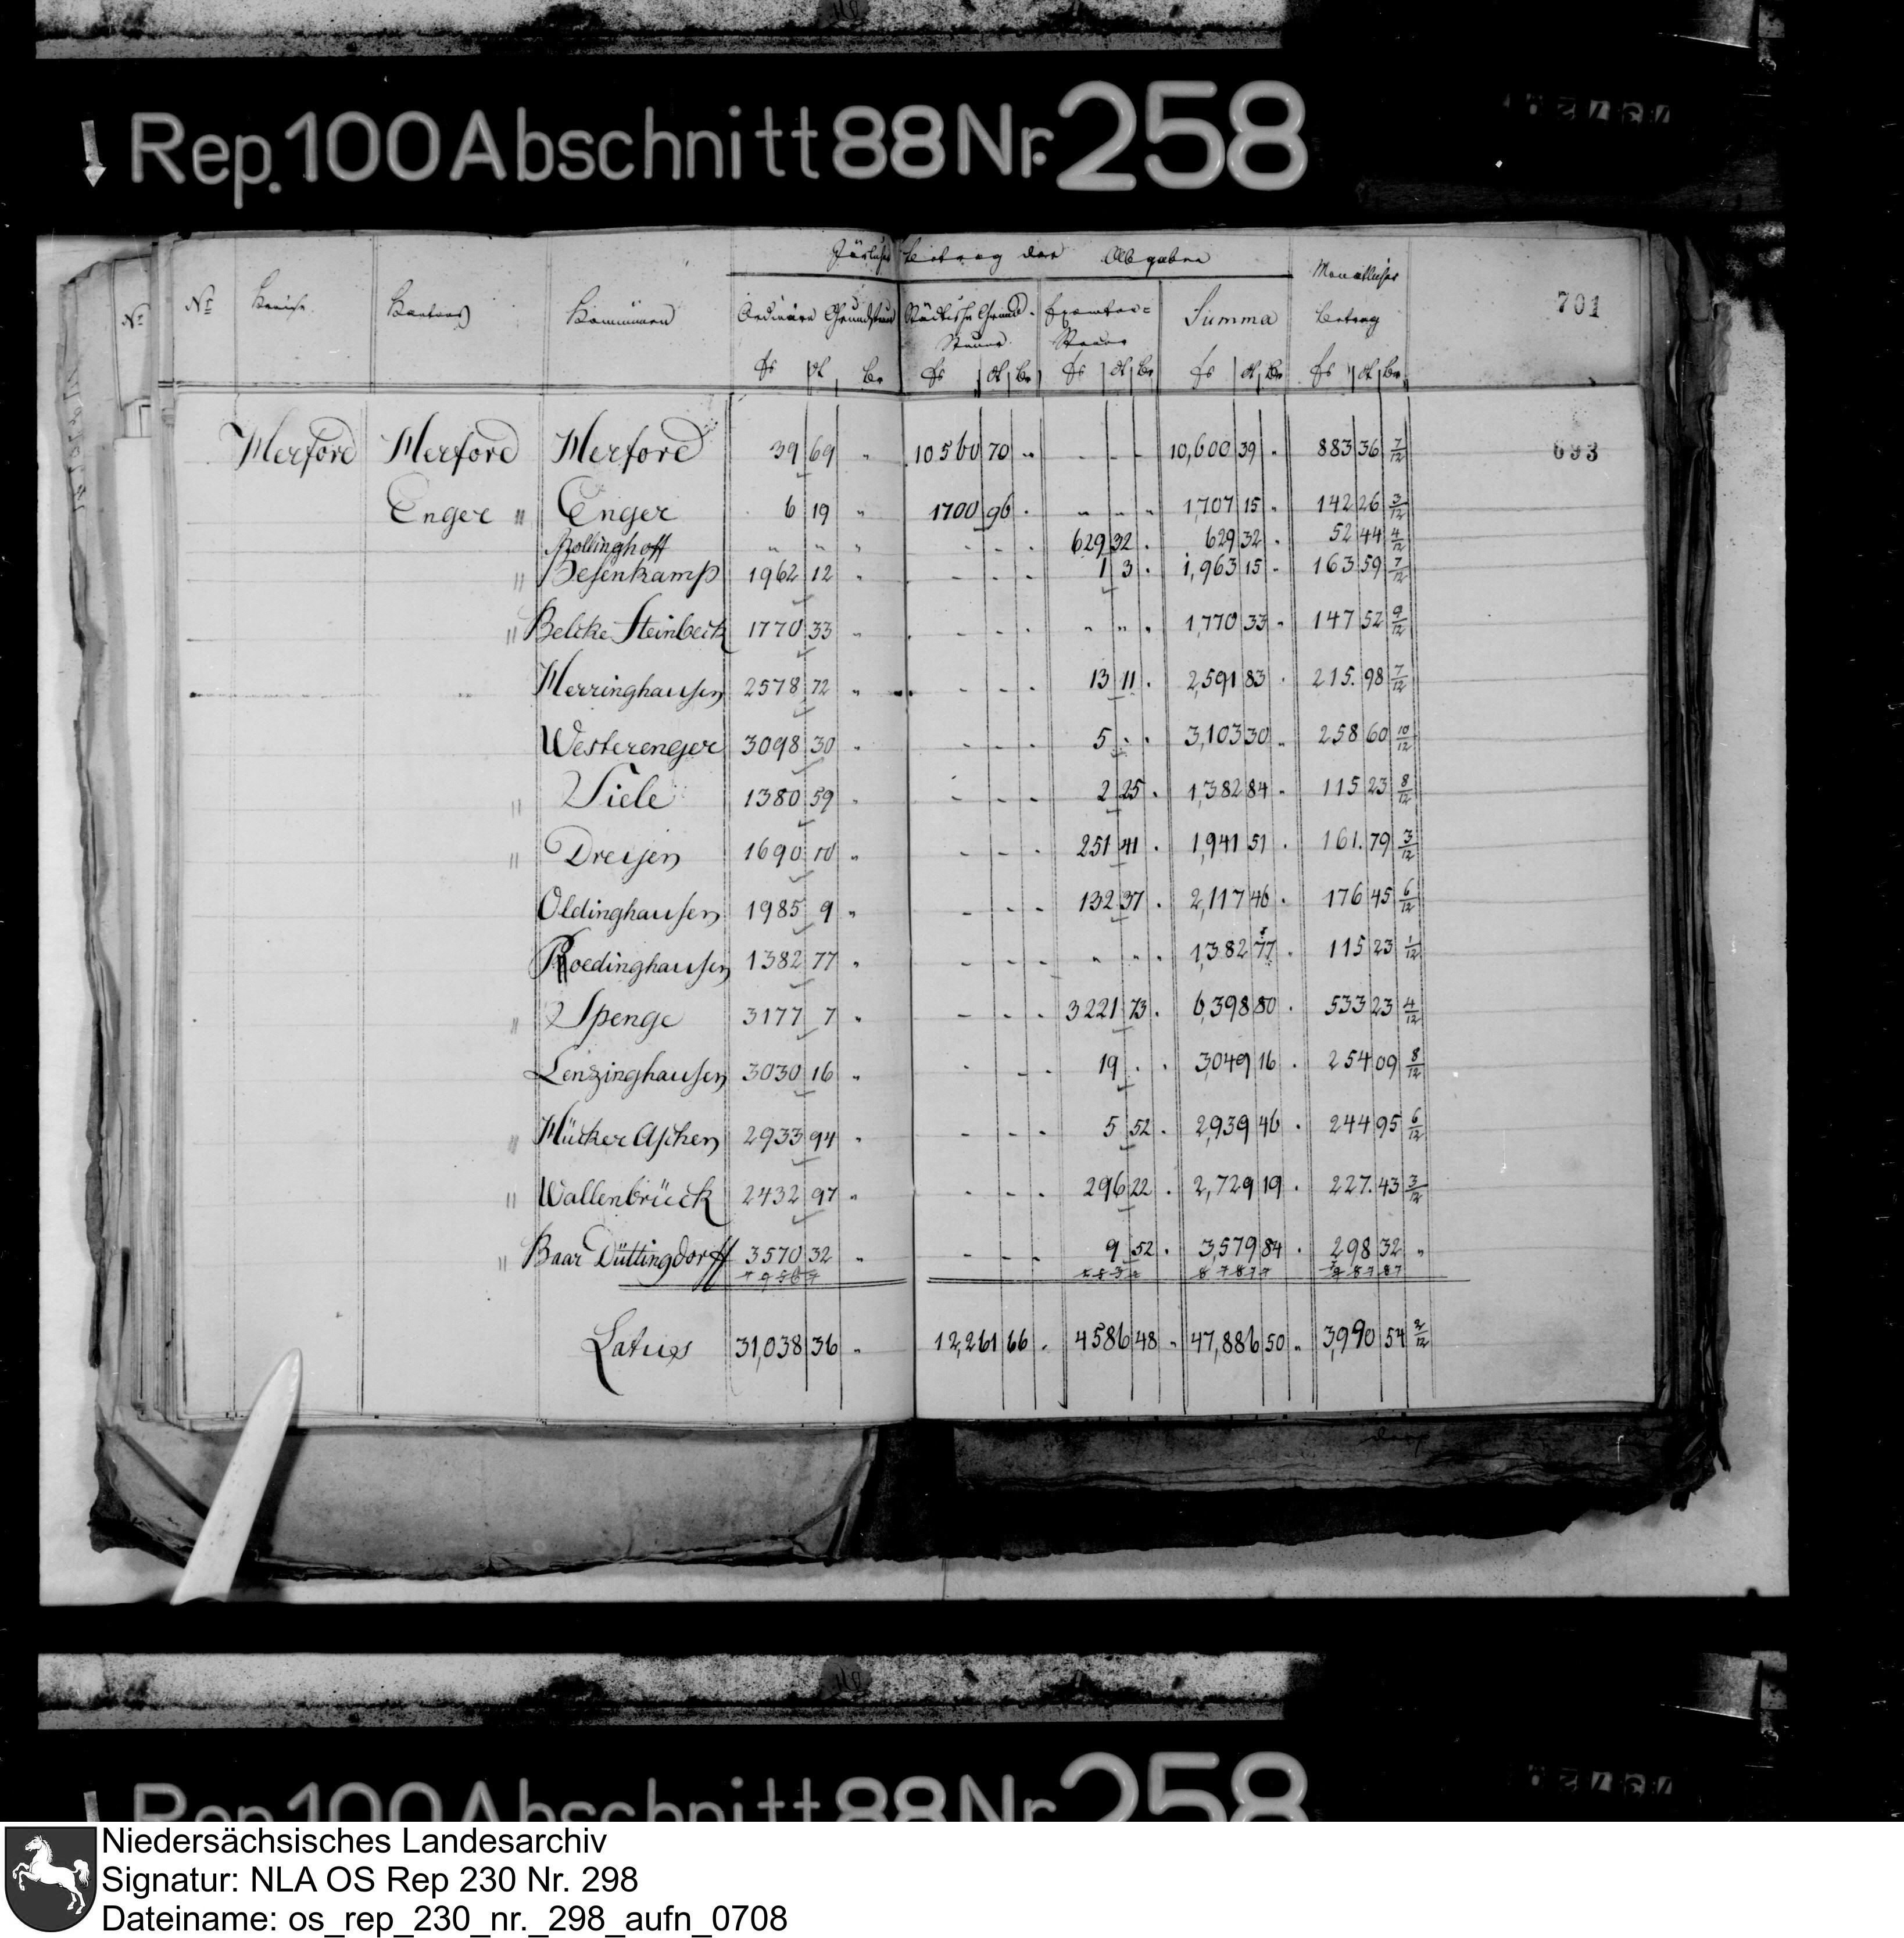 Rep. 100 Abschnitt 88 Nr. 258
Järlicher Betrag der Abgaben
701
No No Kantons Kommünen Ordinäre Grundsteuer Städtische Grund- Steuer Exemten= Steuer Summa Monatlicher Betrag
fr ct fr ct fr ct fr ct fr ct
Herford Herford Herford 39 69 " 10560 70 " - - - 10,600 39 " 883 36 7/12
693
Enger " Enger 6 19 " 1700 96 . " " " 1,707 15 " 142 26 3/12
Bollinghoff " " " - - - 629 32 . 629 32 . 52 44 4/12
" Besenkamp 1962 12 " - - - 1 3 . 1,963 15 - 163 59 7/12
" Belcke Steinbeck 1770 33 " - - - " " " 1,770 33 " 147 52 9/12
Herringhausen 2578 72 " - - - 13 11 . 2,591 83 . 215. 98 7/12
Westerenger 3098 30 " - - - 5 . . 3,103 30 " 258 60 10/12
" Siele 1380 59 " - - - 2 25 . 1,382 84 " 115 23 8/12
" Dreyen 1690 10 " - - - 251 41 . 1,941 51 . 161. 79 3/12
Oldinghausen 1985 9 " - - - 132 37 . 2,117 46 . 176 45 6/12
Roedinghausen 1382 77 " - - - " " " 1,382 77 . 115 23 1/12
" Spenge 3177 7 " - - - 3221 73 . 6,398 80 . 533 23 4/12
Lenzinghausen 3030 16 " - - - 19 . . 3,049 16 . 254 09 8/12
" Hücker Aschen 2933 94 " - - - 5 52 . 2,939 46 . 244 95 6/12
" Wallenbrück 2432 97 " - - - 296 22 . 2,729 19 . 227. 43 3/12
" Baar Düttingdorff 3570 32 " - - - 9 52 . 3,579 84 . 298 32 "
Latus 31,038 36 " 12,261 66 . 4586 48 " 47,886 50 " 3,990 54 2/12
Rep. 100 Abschnitt 88 Nr. 258
Niedersächsisches Landesarchiv
Signatur: NLA OS Rep 230 Nr. 298
Dateiname: os_rep_230_nr._298_aufn_0708